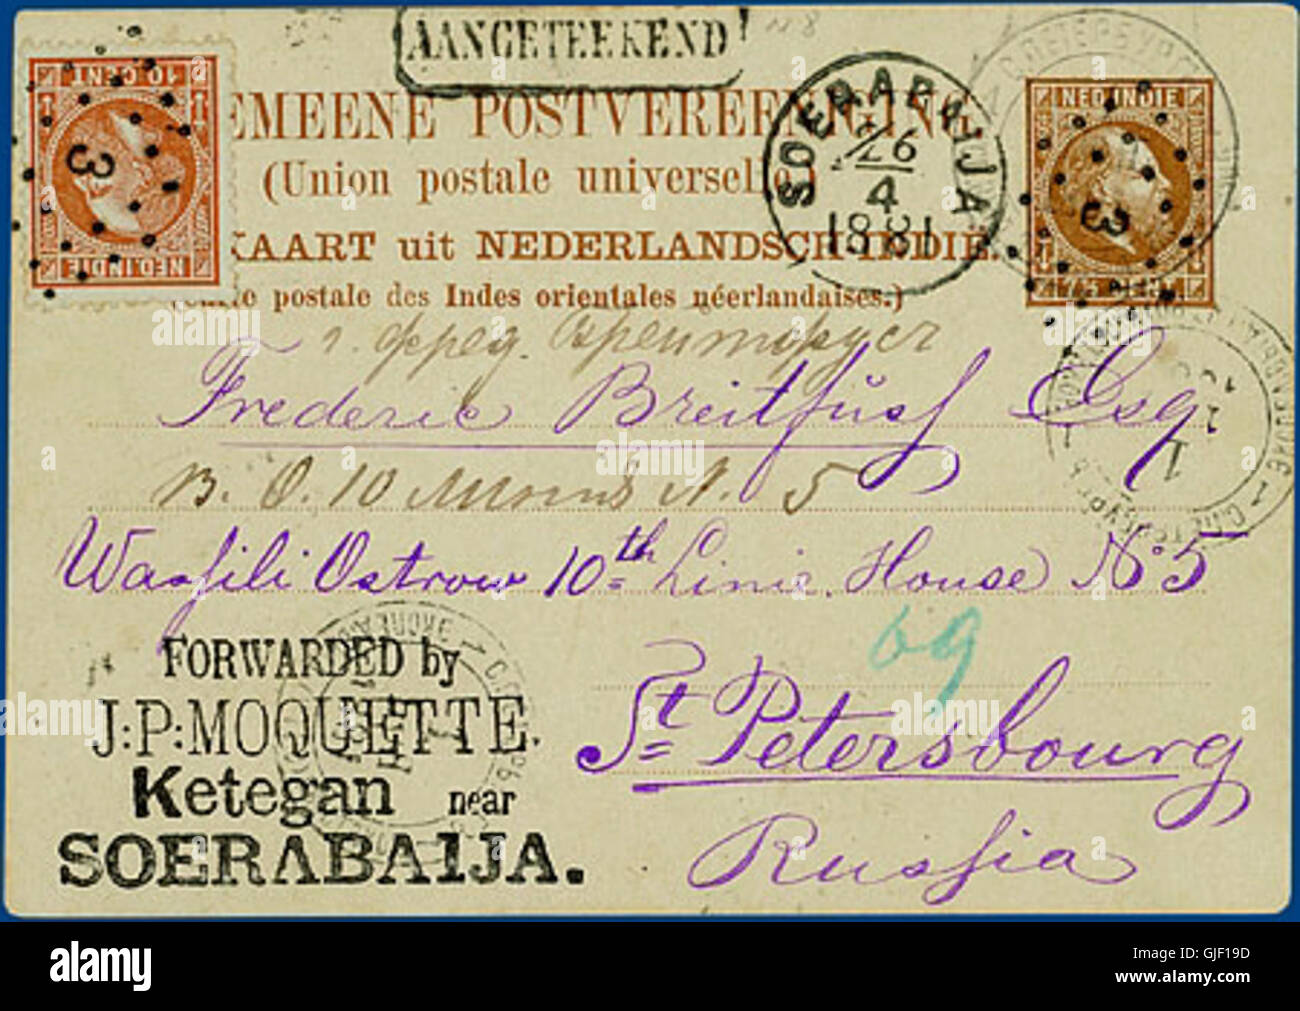 AANGETEEKEND
10 CENT
3
NED. INDIE
EMEENE POSTVEREENIGING
(Union postale universelle)
KAART uit NEDERLANDSCH-INDIE.
(Carte postale des Indes orientales néerlandaises.)
SOERABAIJA
26
4
1881
NED. INDIE
3
Frederic Breitfuſs Esqr
B. O. 10 N. 5
Waſsili Ostrow 10th Linie. House No 5
69
St Petersbourg
Ruſsia
FORWARDED by
J:P:MOQUETTE.
Ketegan near
SOERABAIJA.
alamy
Image ID: GJF19D
www.alamy.com